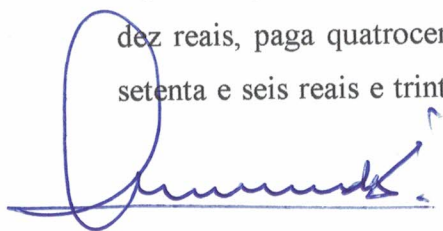 dez reais, paga quatrocen
setenta e seis reais e trint